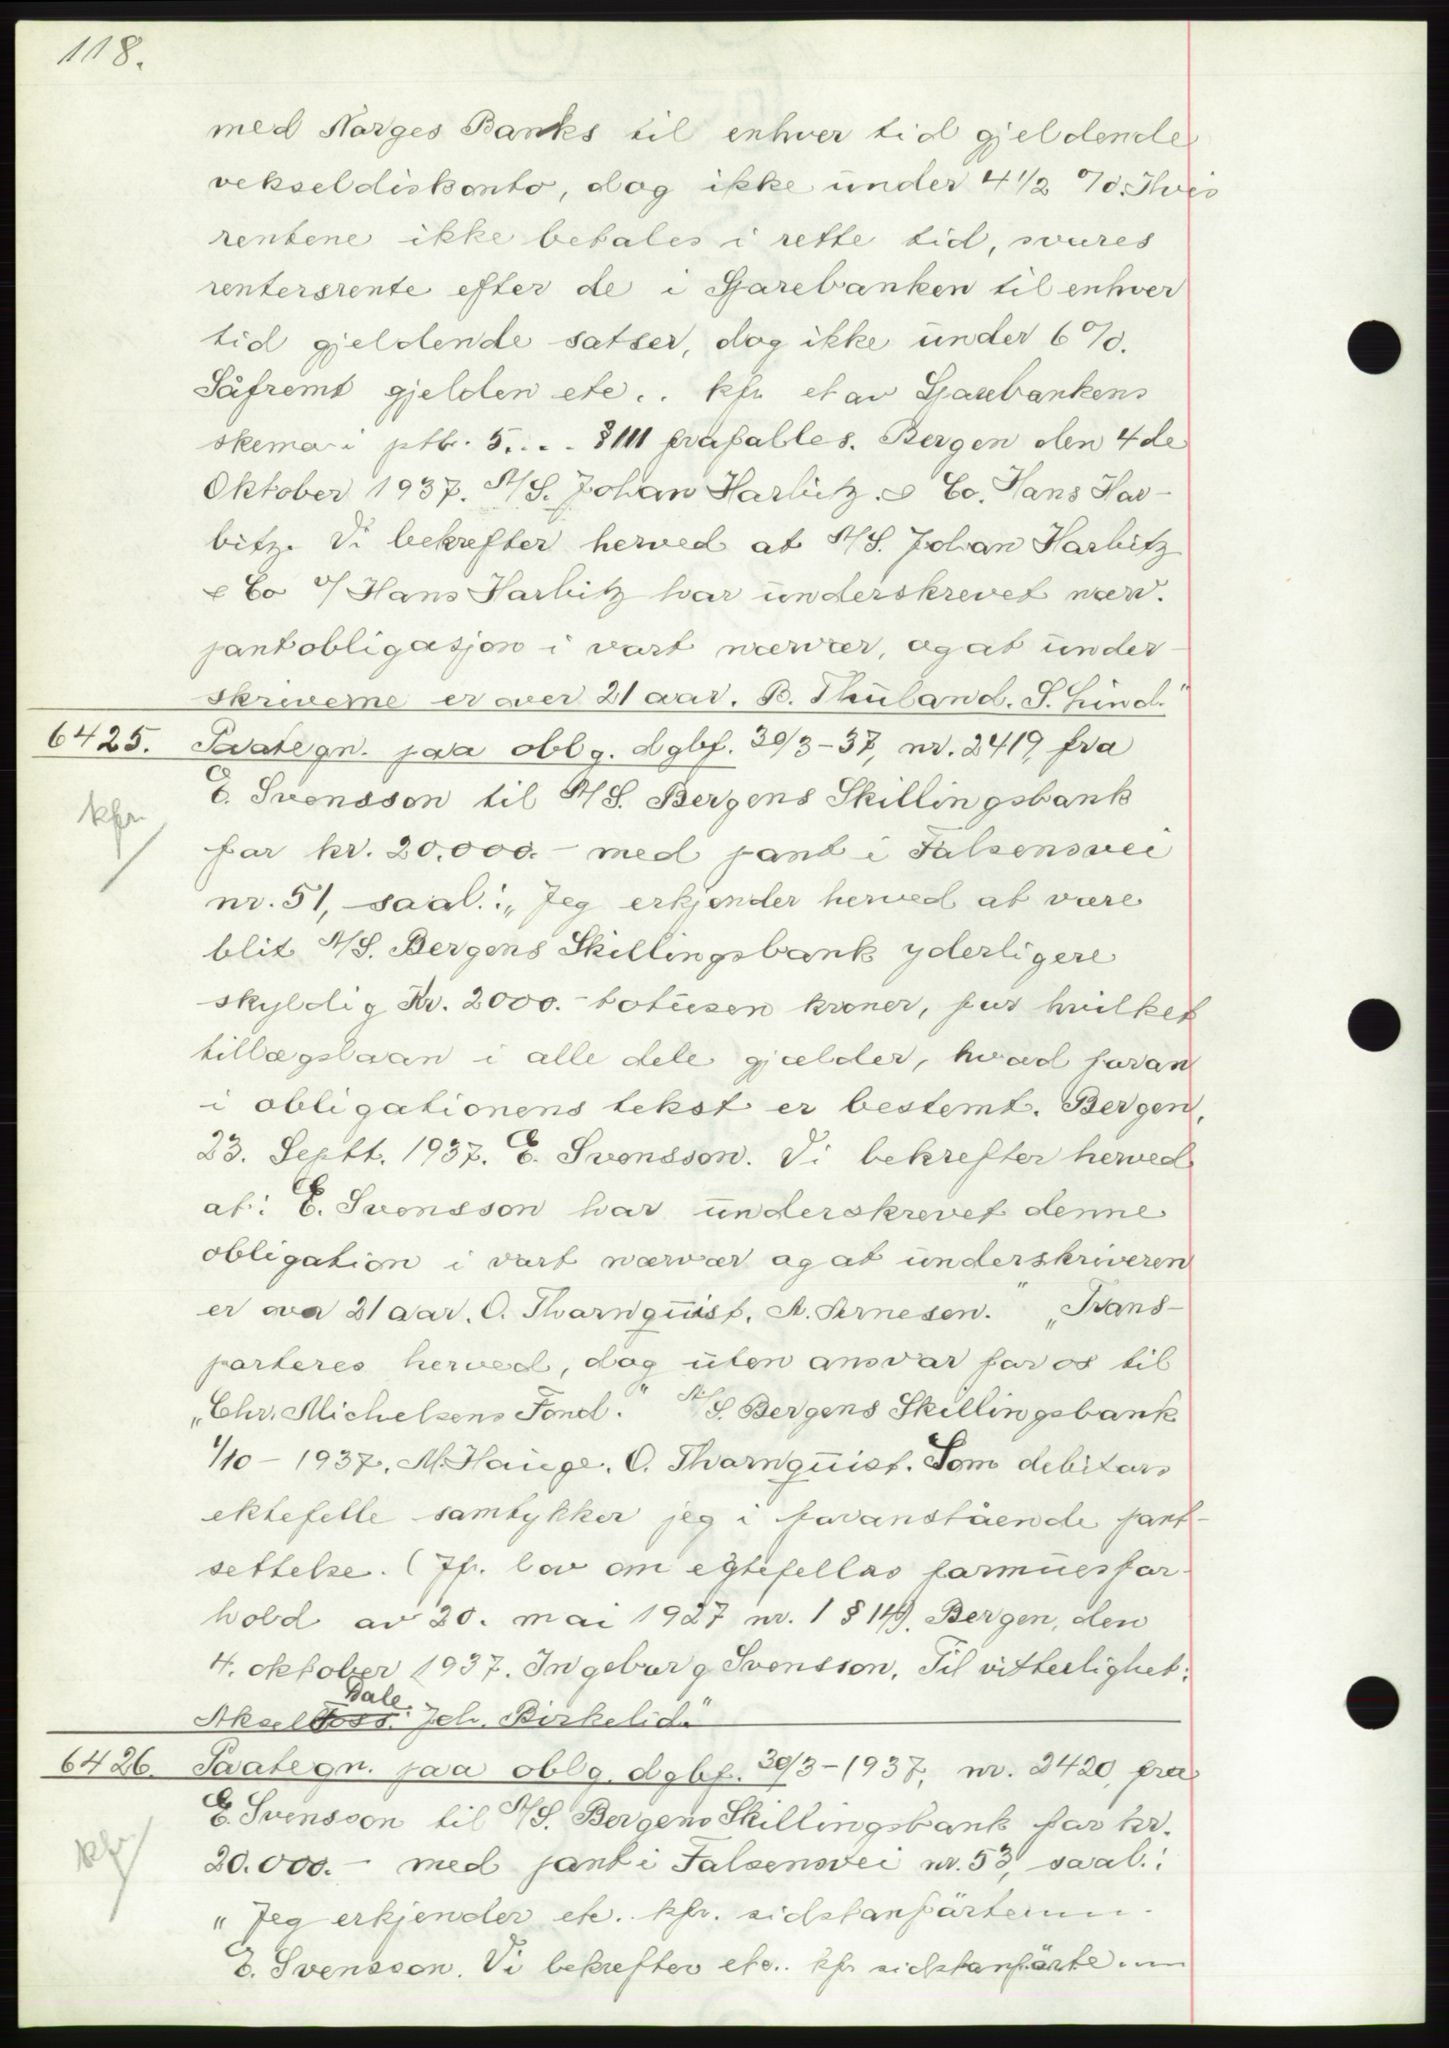 118.
med Norges Banks til enhver tid gjeldende
vekseldiskonto, dog ikke under 4 1/2 %. Hvis
rentene ikke betales i rette tid, svares
rentersrente efter de i Sparebanken til enhver
tid gjeldende satser, dog ikke under 6 %.
Såfremt gjelden etc.. kfr. et av Sparebankens
skema i ptb. 5.... § 111 frafalles. Bergen den 4de
Oktober 1937. A/S. Johan Harbitz. & Co. Hans Har-
bitz. Vi bekrefter herved at A/S. Johan Harbitz
& Co v/ Hans Harbitz har underskrevet nærv.
pantobligasjon i vort nærvær, og at under-
skriverne er over 21 aar. B. Thuland. S. Lind."
6425. Paategn. paa oblg. dgbf. 30/3-37, nr. 2419, fra
E. Svensson til A/S. Bergens Skillingsbank
kfr.
for kr. 20.000.- med pant i Falsensvei
nr. 51, saal.: „Jeg erkjender herved at være
blit A/S. Bergens Skillingsbank yderligere
skyldig Kr. 2000.- totusen kroner, for hvilket
tillægslaan i alle dele gjælder, hvad foran
i obligationens tekst er bestemt. Bergen,
23. Septt. 1937. E. Svensson. Vi bekrefter herved
at: E. Svensson har underskrevet denne
obligation i vort nærvær og at underskriveren
er over 21 aar. O. Thornquist. A. Arnesen." „Trans-
porteres herved, dog uten ansvar for os til
„Chr. Michelsens Fond." A/S. Bergens Skillingsbank
1/10 - 1937. M. Hauge. O. Thornquist. Som debitors
ektefelle samtykker jeg i foranstående pant-
settelse. (Jfr. lov om egtefellas formuesfor-
hold av 20. mai 1927 nr. 1 § 14). Bergen, den
4. oktober 1937. Ingeborg Svensson. Til vitterlighet:
Dale.
Aksel Foss. Joh. Birkelid."
6426. Paategn. paa oblg. dgbf. 30/3-1937, nr. 2420, fra
E. Svensson til A/S. Bergens Skillingsbank for kr.
kfr
20.000.- med pant i Falsensvei nr. 53, saal.:
„Jeg erkjender etc.. kfr. sidstanførte nr.
E. Svensson. Vi bekrefter etc.. kfr sidstanførte nr